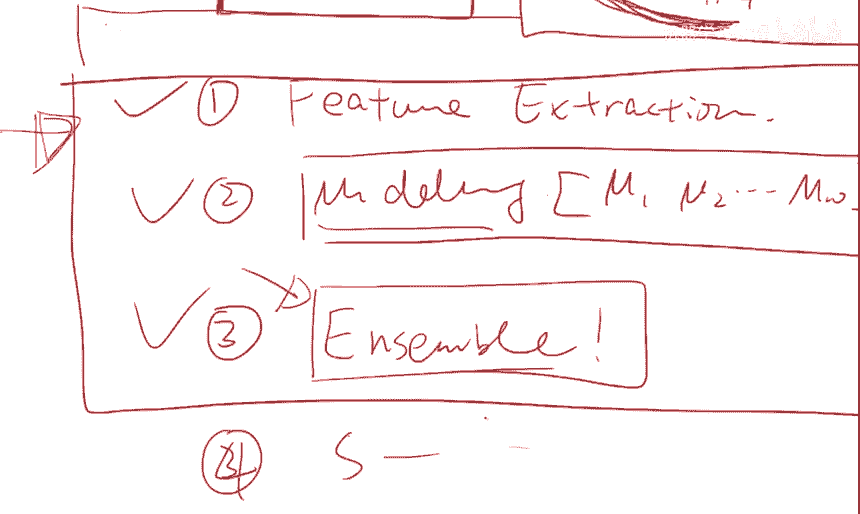 ✓ ① Feature Extraction.
✓ ② Modeling [ M₁ M₂ ... M₁₀
✓ ③ Ensemble!
④ S —